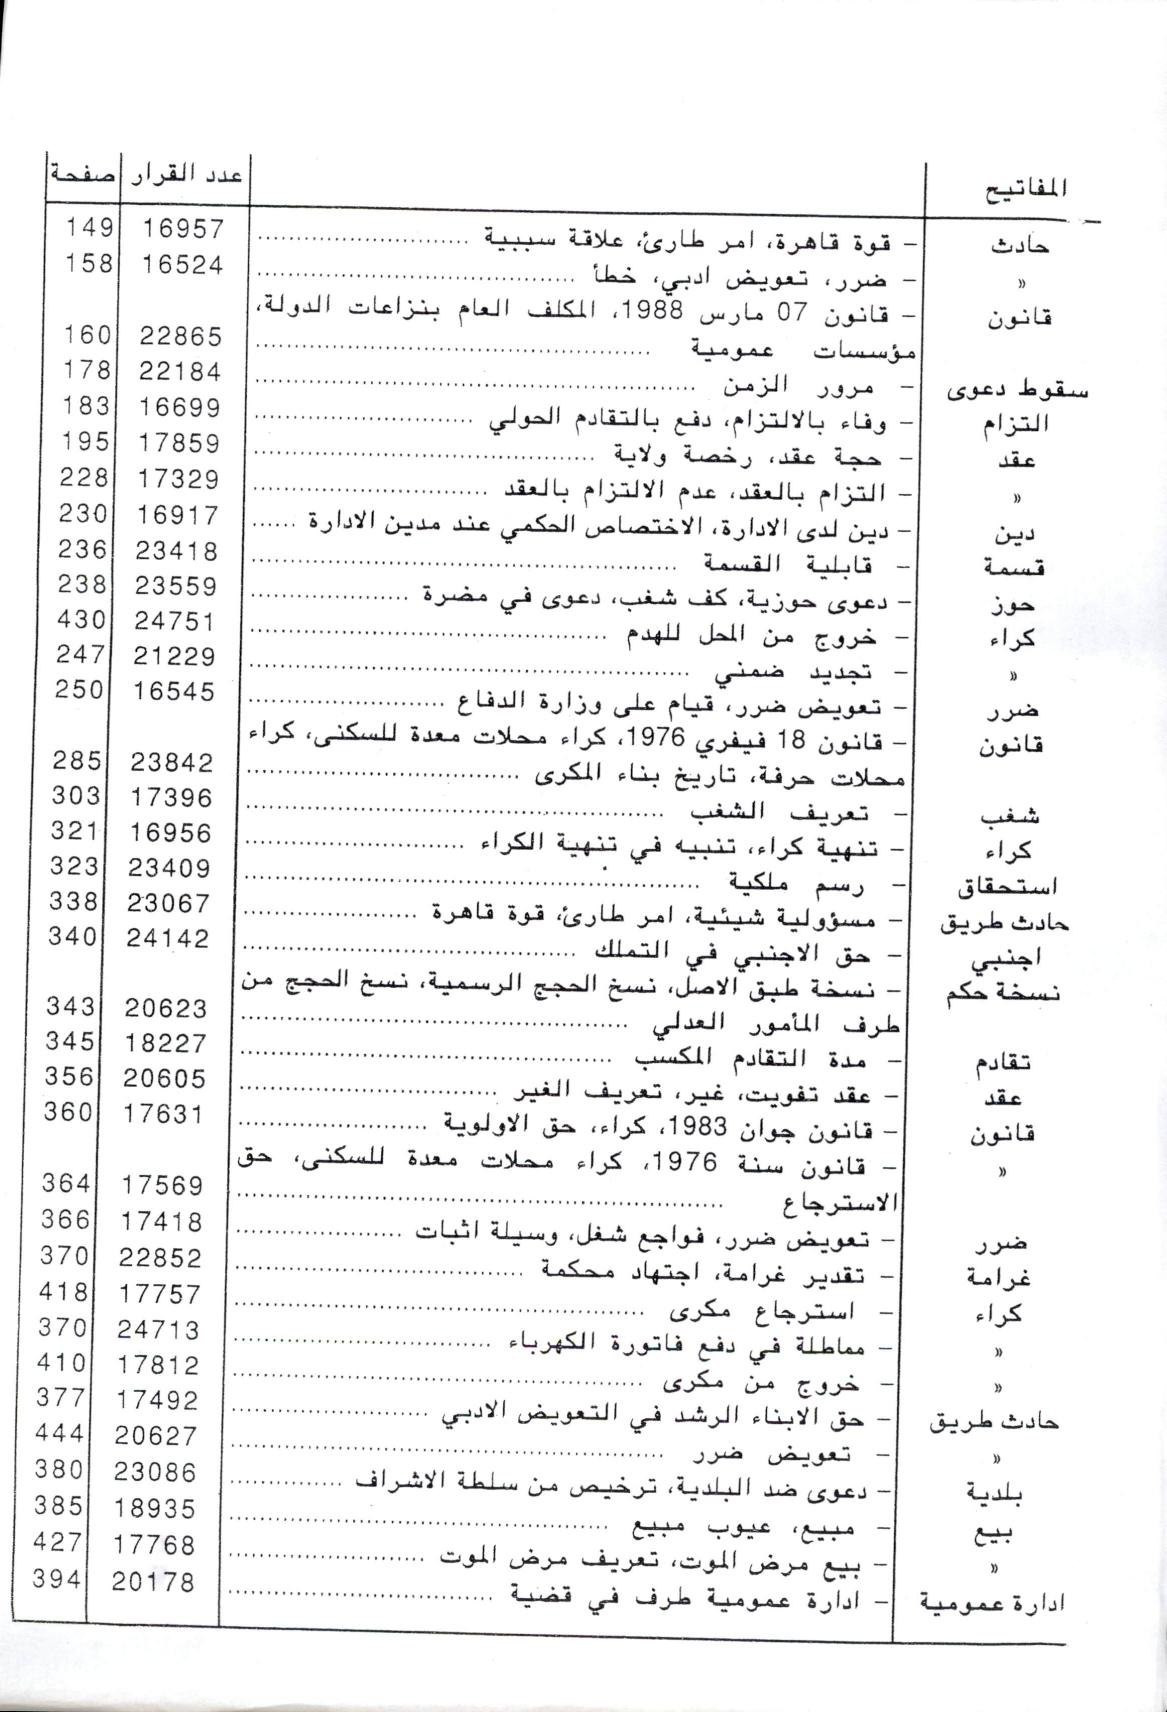 المفاتيح عدد القرار صفحة
حادث – قوة قاهرة، امر طارئ، علاقة سببية ........ 16957 149
» – ضرر، تعويض ادبي، خطأ ........ 16524 158
قانون – قانون 07 مارس 1988، المكلف العام بنزاعات الدولة،
مؤسسات عمومية ........ 22865 160
سقوط دعوى – مرور الزمن ........ 22184 178
التزام – وفاء بالالتزام، دفع بالتقادم الحولي ........ 16699 183
عقد – حجة عقد، رخصة ولاية ........ 17859 195
» – التزام بالعقد، عدم الالتزام بالعقد ........ 17329 228
دين – دين لدى الادارة، الاختصاص الحكمي عند مدين الادارة ...... 16917 230
قسمة – قابلية القسمة ........ 23418 236
حوز – دعوى حوزية، كف شغب، دعوى في مضرة ........ 23559 238
كراء – خروج من المحل للهدم ........ 24751 430
» – تجديد ضمني ........ 21229 247
ضرر – تعويض ضرر، قيام على وزارة الدفاع ........ 16545 250
قانون – قانون 18 فيفري 1976، كراء محلات معدة للسكنى، كراء
محلات حرفة، تاريخ بناء المكرى ........ 23842 285
شغب – تعريف الشغب ........ 17396 303
كراء – تنهية كراء، تنبيه في تنهية الكراء ........ 16956 321
استحقاق – رسم ملكية ........ 23409 323
حادث طريق – مسؤولية شيئية، امر طارئ، قوة قاهرة ........ 23067 338
اجنبي – حق الاجنبي في التملك ........ 24142 340
نسخة حكم – نسخة طبق الاصل، نسخ الحجج الرسمية، نسخ الحجج من
طرف المأمور العدلي ........ 20623 343
تقادم – مدة التقادم المكسب ........ 18227 345
عقد – عقد تفويت، غير، تعريف الغير ........ 20605 356
قانون – قانون جوان 1983، كراء، حق الاولوية ........ 17631 360
» – قانون سنة 1976، كراء محلات معدة للسكنى، حق
الاسترجاع ........ 17569 364
ضرر – تعويض ضرر، فواجع شغل، وسيلة اثبات ........ 17418 366
غرامة – تقدير غرامة، اجتهاد محكمة ........ 22852 370
كراء – استرجاع مكرى ........ 17757 418
» – مماطلة في دفع فاتورة الكهرباء ........ 24713 370
» – خروج من مكرى ........ 17812 410
حادث طريق – حق الابناء الرشد في التعويض الادبي ........ 17492 377
» – تعويض ضرر ........ 20627 444
بلدية – دعوى ضد البلدية، ترخيص من سلطة الاشراف ........ 23086 380
بيع – مبيع، عيوب مبيع ........ 18935 385
» – بيع مرض الموت، تعريف مرض الموت ........ 17768 427
ادارة عمومية – ادارة عمومية طرف في قضية ........ 20178 394